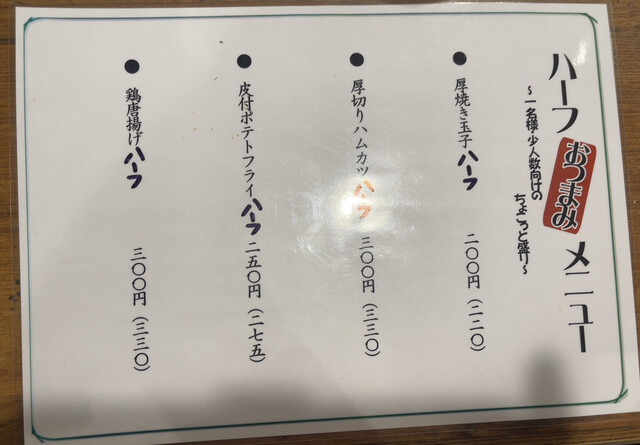 ハーフ おつまみ メニュー
～一名様・少人数向けの
ちょこっと盛り～
● 厚焼き玉子ハーフ 二〇〇円（二二〇）
● 厚切りハムカツハーフ 三〇〇円（三三〇）
● 皮付ポテトフライハーフ 二五〇円（二七五）
● 鶏唐揚げハーフ 三〇〇円（三三〇）